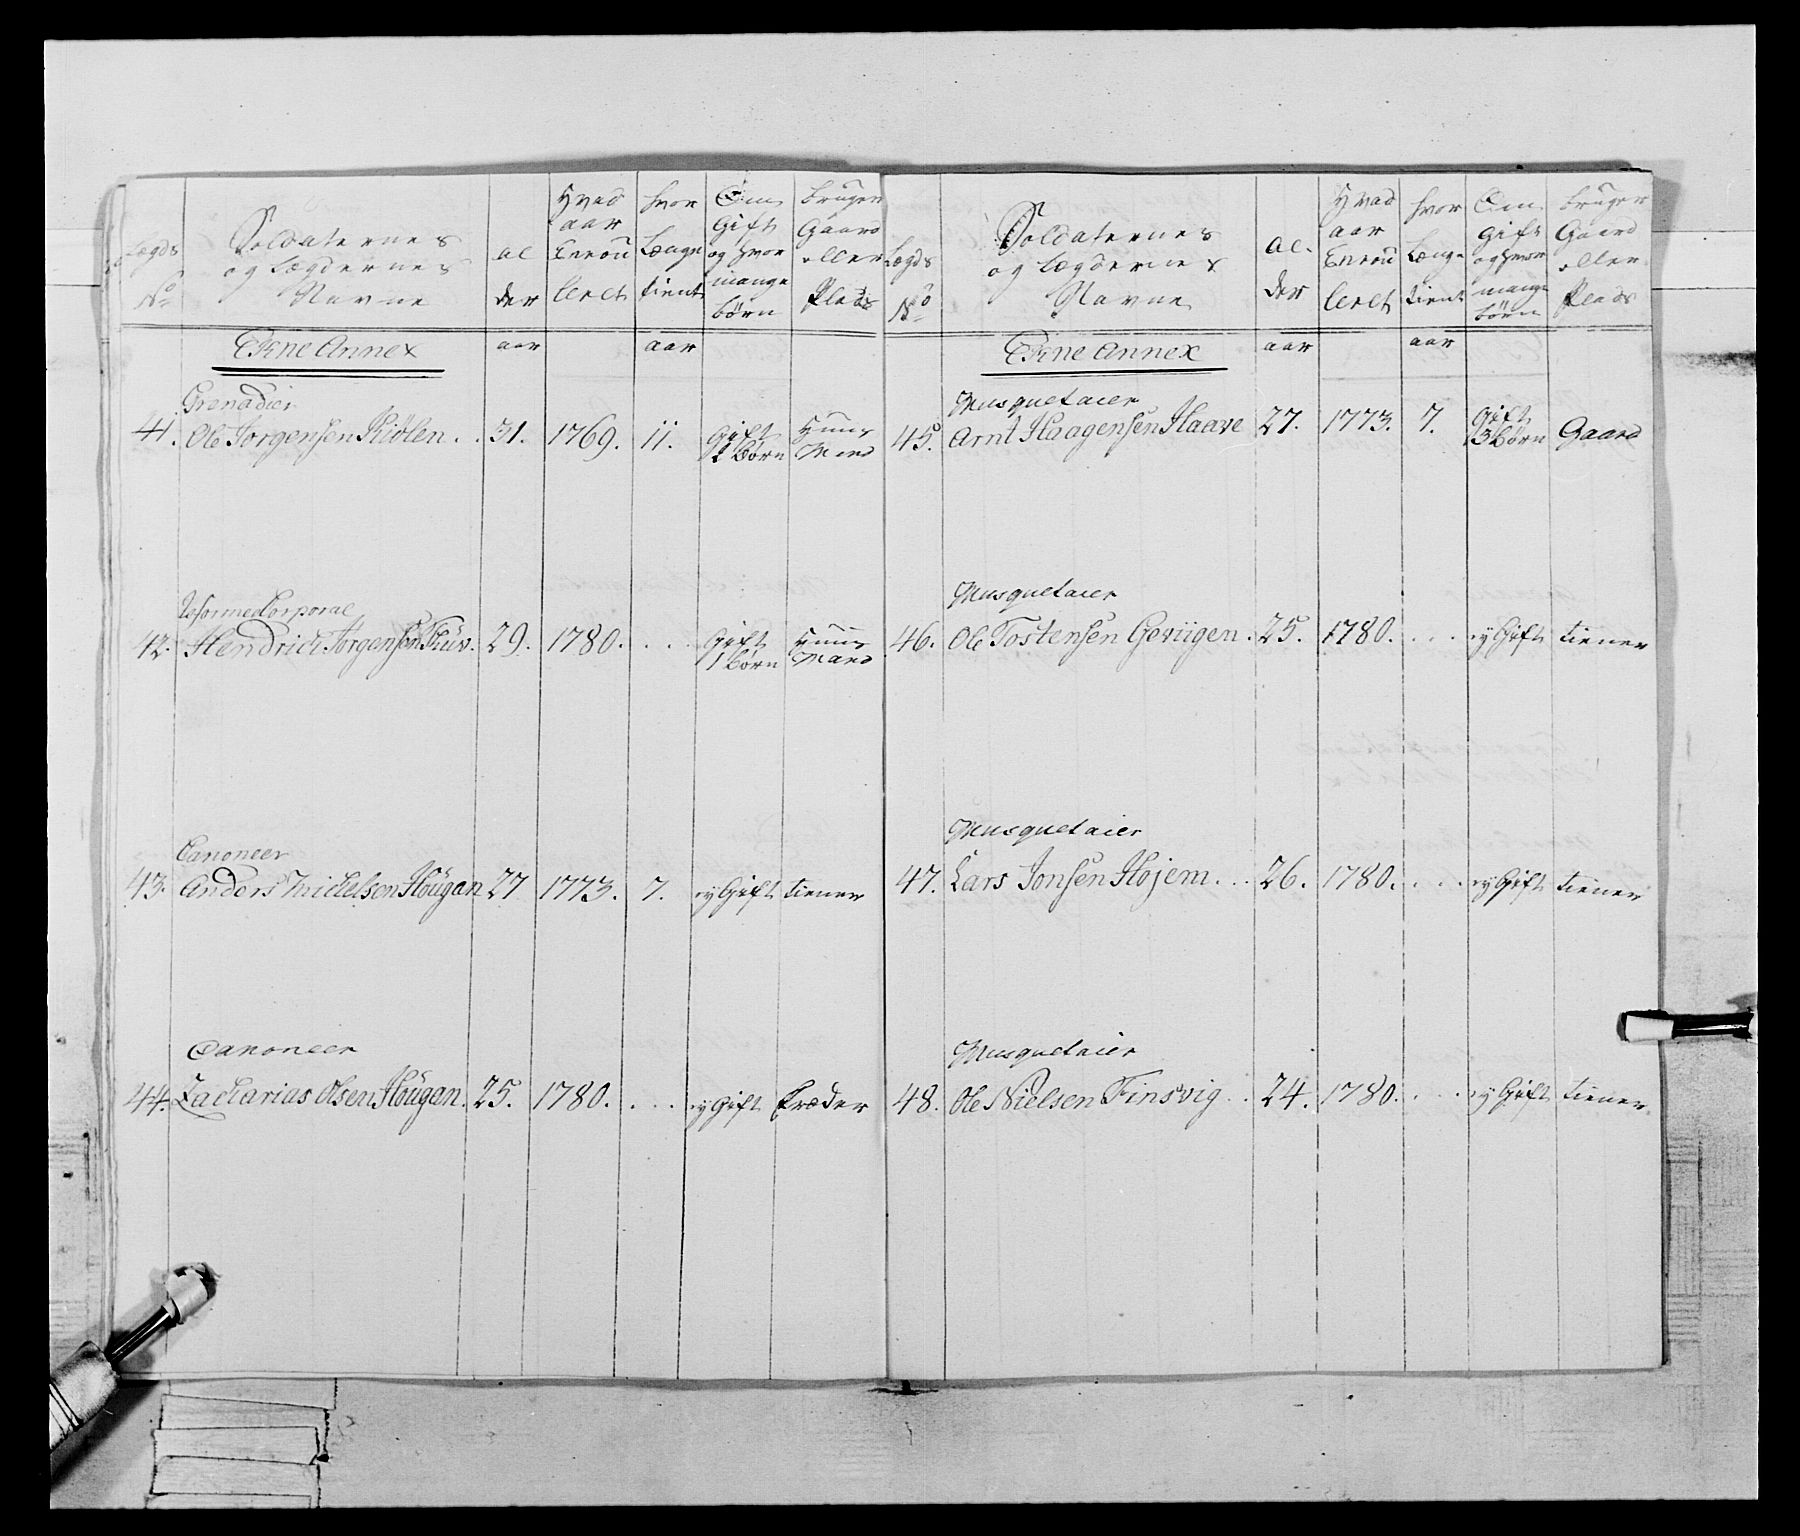 Lægds No | Soldaternes og Lægdernes Navne | al der | Hvad aar Enrou leret | hvor Længe tient | Om Gift og hvor mange börn | bruger Gaard eller Plads
Ekne Annex | aar | aar
Grenadier
41. Ole Jorgensen Kiölen . . 31. 1769. 11. Gift 2 börn Huus Mand
Reformee Corporal
42. Hendrich Jorgensen Thuv. 29. 1780. . . . Gift 1 börn Huus Mand
Canoneer
43. Anders Michelsen Höugan 27 1773. 7. ey Gift tiener
Canoneer
44. Zacharias Olsen Höugan. 25. 1780. . . . ey Gift træder
Lægds No | Soldaternes og Lægdernes Navne | al- der | Hvad aar Enrou leret | hvor Længe tient | Om gift og hvor mange börn | bruger Gaard eller Plads
Ekne Annex | aar | aar
Musquetaier
45. Arnt Haagensen Haave 27. 1773. 7. gift 3 börn Gaard
Musquetaier
46. Ole Tostensen Geviigen . 25. 1780. . . . ey Gift tiener
Musquetaier
47. Lars Jonsen Höjem . . . 26. 1780. . . . ey Gift tiener
Musquetaier
48. Ole Nielsen Finsvig . . 24. 1780. . . . ey Gift tiener.